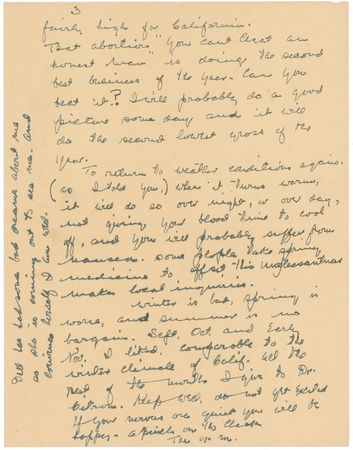 3
fairly high for California.
That abortion "You can't cheat an
honest man" is doing the second
best business of the year. Can you
beat it? I will probably do a good
picture some day and it will
do the second lowest gross of the
year.
To return to weather conditions again.
(as I told you) when it turns warm,
it will do so over night, or over day,
not giving your blood time to cool
off, and you will probably suffer from
nausea. Some people take spring
medicine to offset this unpleasantness
makes local inquiries.
Winter is bad, spring is
worse, and summer is no
bargain. Sept, Oct, and Early
Nov. I liked, comparable to the
winter climate of Calif. all the
rest of the months I give to Dr.
Keep well, do not get excited
If your nerves are quiet you will be
happy - on the
Tell has had some bad dreams about me
as she is coming out to see me. and
convince herself I am well.